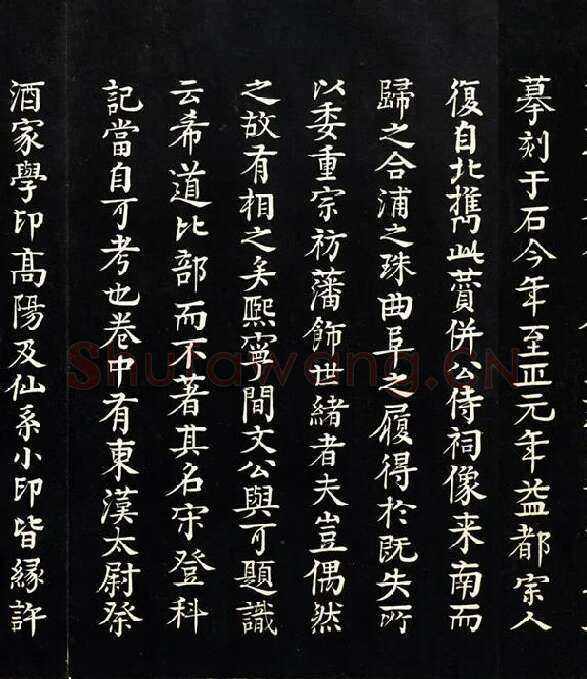 摹刻于石今年至正元年益都宗人
復自北攜此蕒併公侍祠像来南而
歸之合浦之珠曲阜之履得於既失所
以委重宗祊藩飾世緒者夫豈偶然
之故有相之矣熙寧間文公與可題識
云希道比部而不著其名宗登科
記當自可考也卷中有東漢太尉祭
酒家學印高陽及仙系小印皆緣許
Shufawang.CN